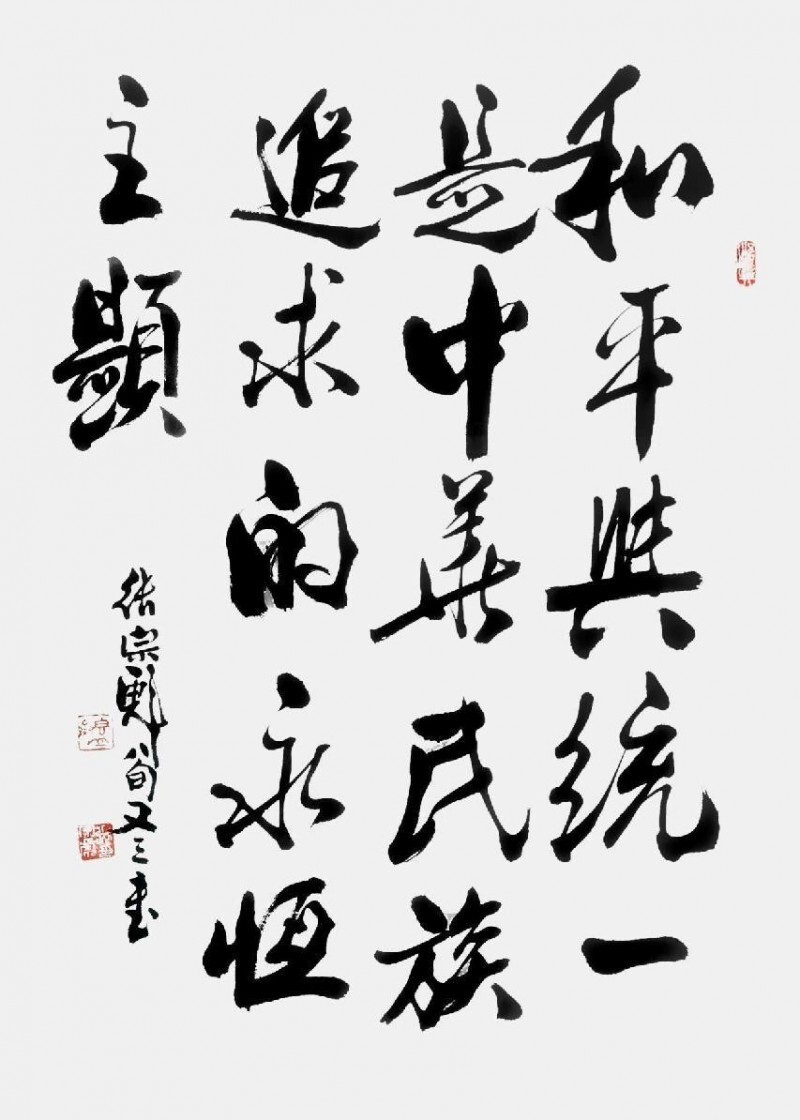 和平與統一
是中華民族
追求的永恒
主題
宗
八旬又三書